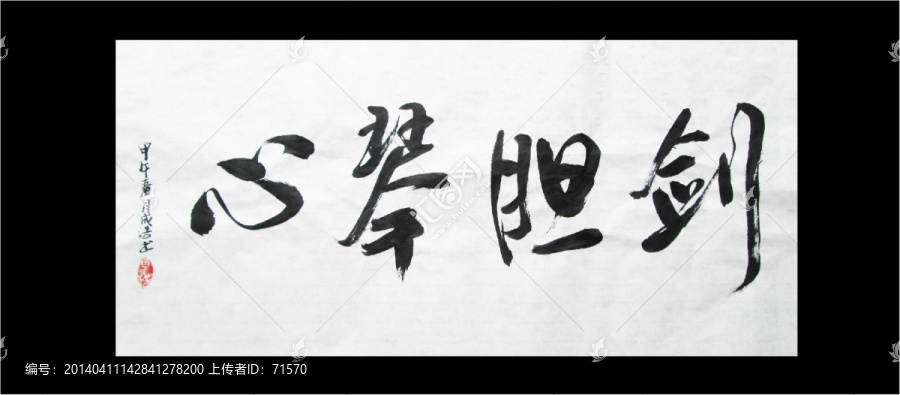 剑胆琴心
甲午春月成浩书
编号：20140411142841278200 上传者ID：71570